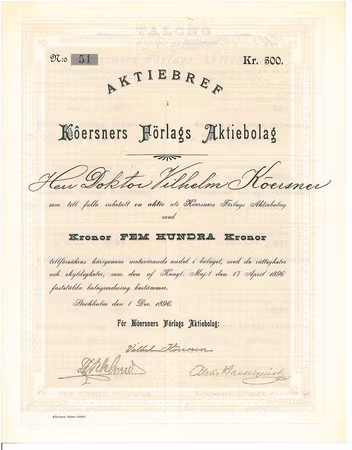 N:o 51 Kr. 500.
AKTIEBREF
i
Köersners Förlags Aktiebolag
Herr Doktor Vilhelm Köersner
som till fullo inbetalt en aktie uti Köersners Förlags Aktiebolag
med
Kronor FEM HUNDRA Kronor
tillförsäkras härigenom motsvarande andel i bolaget, med de rättigheter
och skyldigheter, som den af Kungl. Maj:t den 17 April 1896
fastställda bolagsordning bestämmer.
Stockholm den 1 Dec. 1896.
För Köersners Förlags Aktiebolag:
Vilhelm Köersner